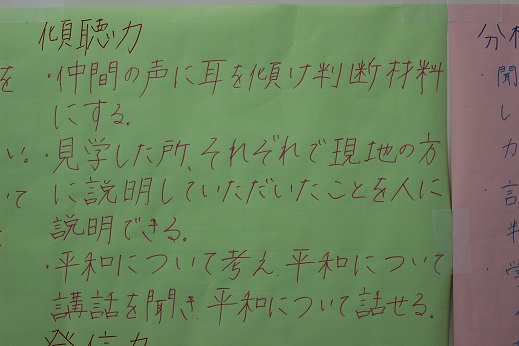 傾聴力
・仲間の声に耳を傾け判断材料
にする。
・見学した所、それぞれで現地の方
に説明していただいたことを人に
説明できる。
・平和について考え、平和について
講話を聞き、平和について話せる。
発信力
を
い。
って
分
・聞
し
力
・言
半
・学